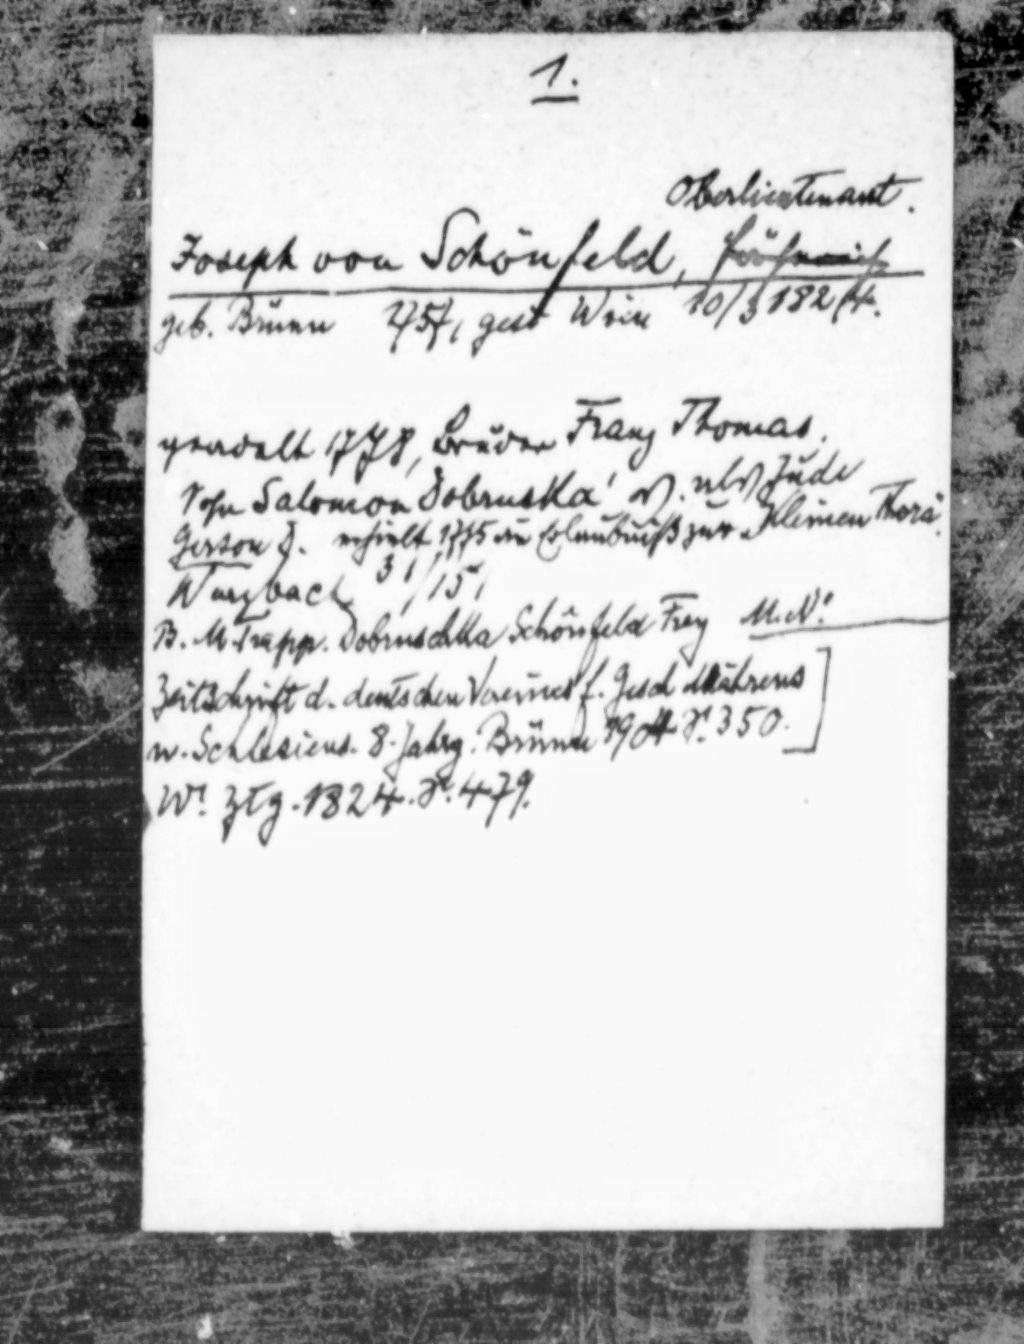 1.
Oberlieutenant.
Joseph von Schönfeld,
geb. Brünn 1757, gest Wien 10/3 1824.
geadelt 1778, Bruder Franz Thomas.
Sohn Salomon Dobruska' als Jude
Gerson D. erhielt 1775 die Erlaubniß zur "Kleinen Thora".
Wurzbach 31/151
B. M. Trapp. Dobruschka Schönfeld Frey M.N!
Zeitschrift d. deutschen Vereines f. Gesch Mährens
u. Schlesiens. 8. Jahrg. Brünn 1904 S. 350.]
Wr. Ztg. 1824. S. 479.